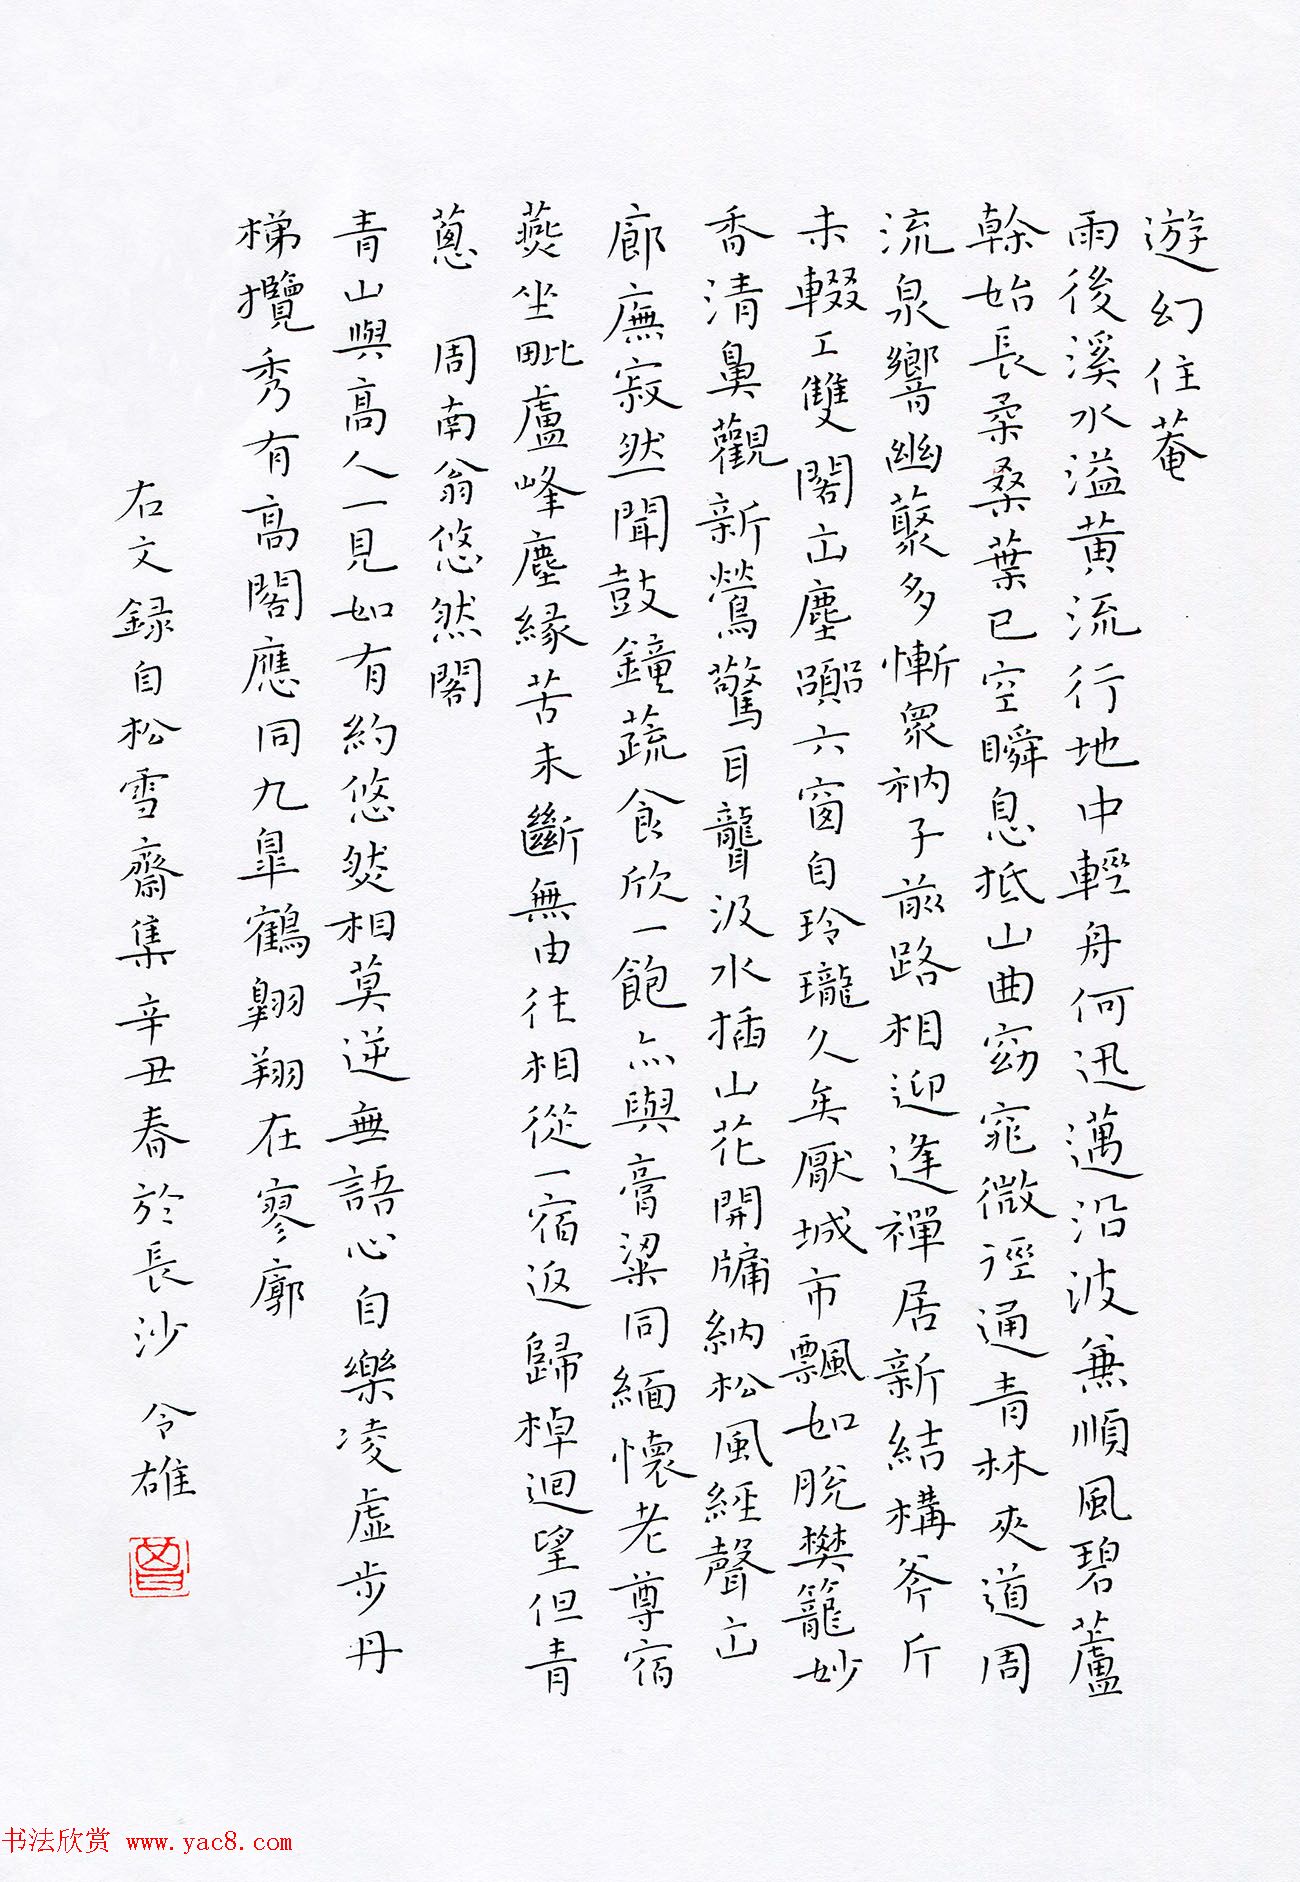 遊幻住菴
雨後溪水溢黃流行地中輕舟何迅邁沿波兼順風碧蘆
榦始長柔桑葉已空瞬息抵山曲窈窕微徑通青林夾道周
流泉響幽藂多慚衆衲子前路相迎逢禪居新結構斧斤
未輟工雙閣出塵囂六窗自玲瓏久矣厭城市飄如脫樊籠妙
香清鼻觀新鶯驚耳聾汲水插山花開牖納松風經聲出
廊廡寂然聞鼓鐘蔬食欣一飽亦與膏粱同緬懷老尊宿
燕坐毗盧峰塵緣苦未斷無由往相從一宿返歸棹迴望但青
蔥 周南翁悠然閣
青山與高人一見如有約悠然相莫逆無語心自樂凌虛步丹
梯攬秀有高閣應同九皐鶴翺翔在寥廓
右文録自松雪齋集辛丑春於長沙 令雄
书法欣赏 www.yac8.com